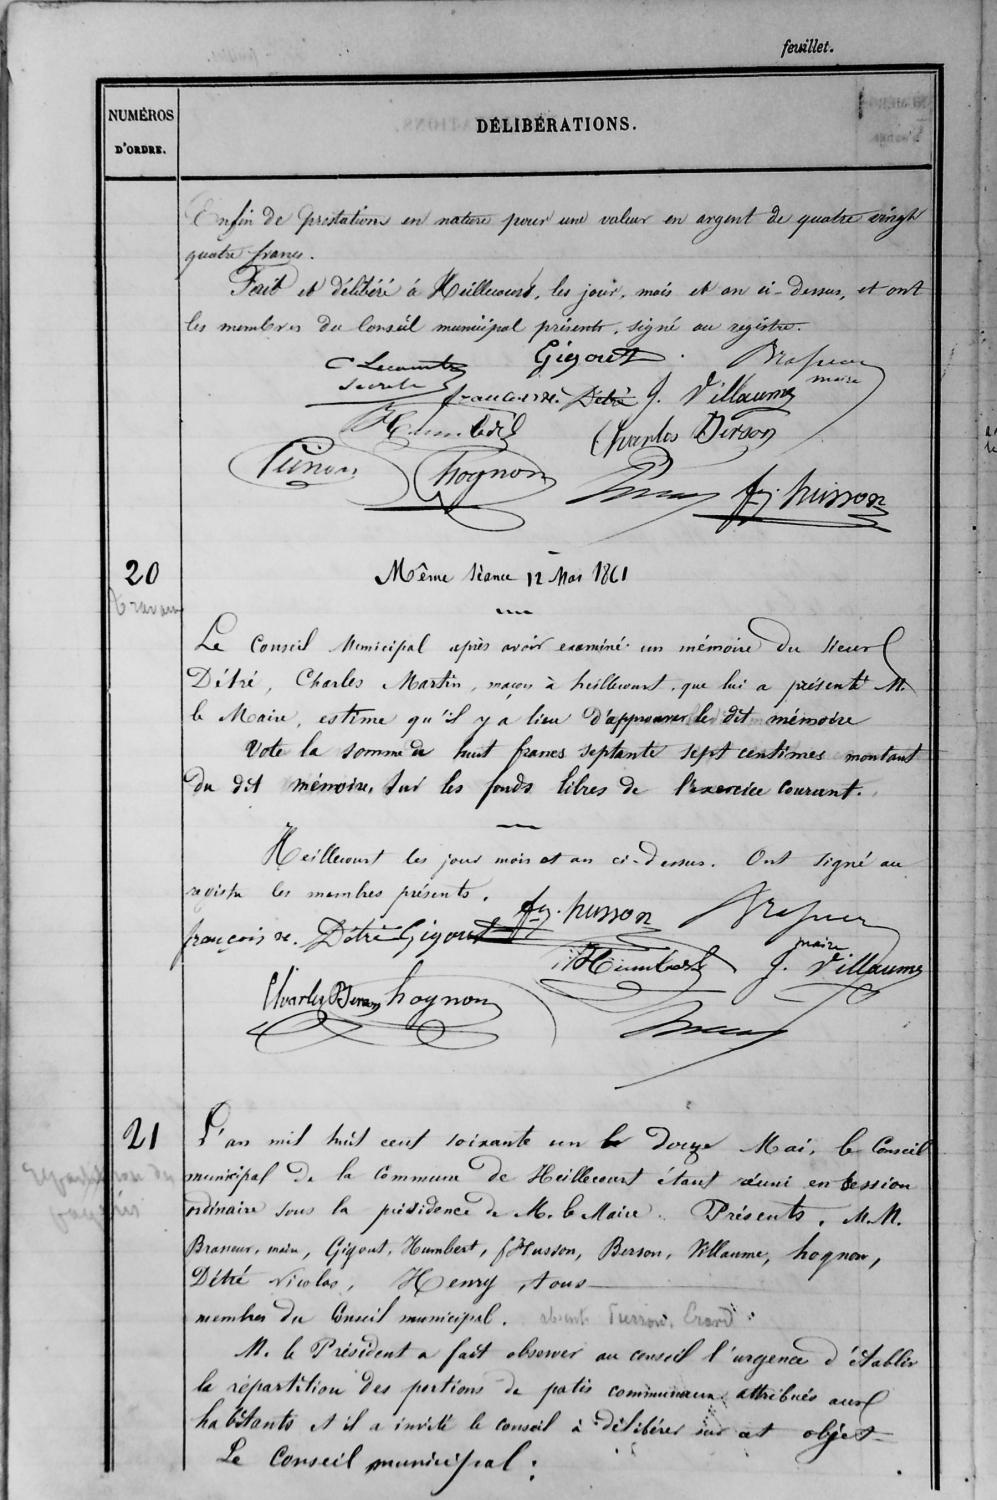 feuillet.
NUMÉROS
D'ORDRE.
DÉLIBÉRATIONS.
Enfin de prestations en nature pour une valeur en argent de quatre vingt
quatre francs.
Fait et délibéré à Heillecourt, les jour, mois et an ci-dessus, et ont
les membres du Conseil municipal présents, signé au registre.
C Lecomte Gigout
maire
françois n. Détré J. Villaume
Humbert Charles Berson
hognon fç. husson
20 Même Séance 12 Mai 1861
Travaux
Le Conseil Municipal après avoir examiné un mémoire du sieur
Détré, Charles Martin, maçon à heillecourt, que lui a présenté M.
le Maire, estime qu'il y a lieu d'approuver le dit mémoire
Vote la somme de huit francs septante sept centimes montant
du dit mémoire, sur les fonds libres de l'exercice courant.
Heillecourt les jour mois et an ci-dessus. Ont signé au
registre les membres présents.
fç. husson
françois n. Détré Gigout
maire
Humbert J. Villaume
Charles Berson hognon
21 L'an mil huit cent soixante un le douze Mai, le Conseil
municipal de la Commune de Heillecourt étant réuni en session
ordinaire sous la présidence de M. le Maire. Présents, M.M.
Braneur, maire, Gigout, Humbert, f Husson, Berson, Villaume, hognon,
Détré Nicolas, Henry, tous
membres du Conseil municipal. absents
M. le Président a fait observer au conseil l'urgence d'établir
la répartition des portions de patis communaux attribués aux
habitants et il a invité le conseil à délibérer sur cet objet
Le Conseil municipal :